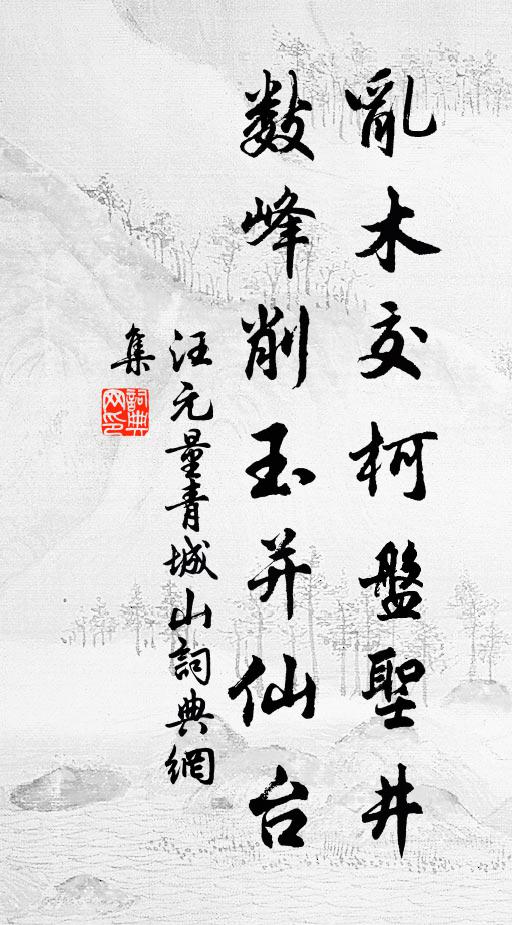 亂木交柯盤聖井
數峰削玉并仙台
汪元量青城山詞典網
集
詞典网印